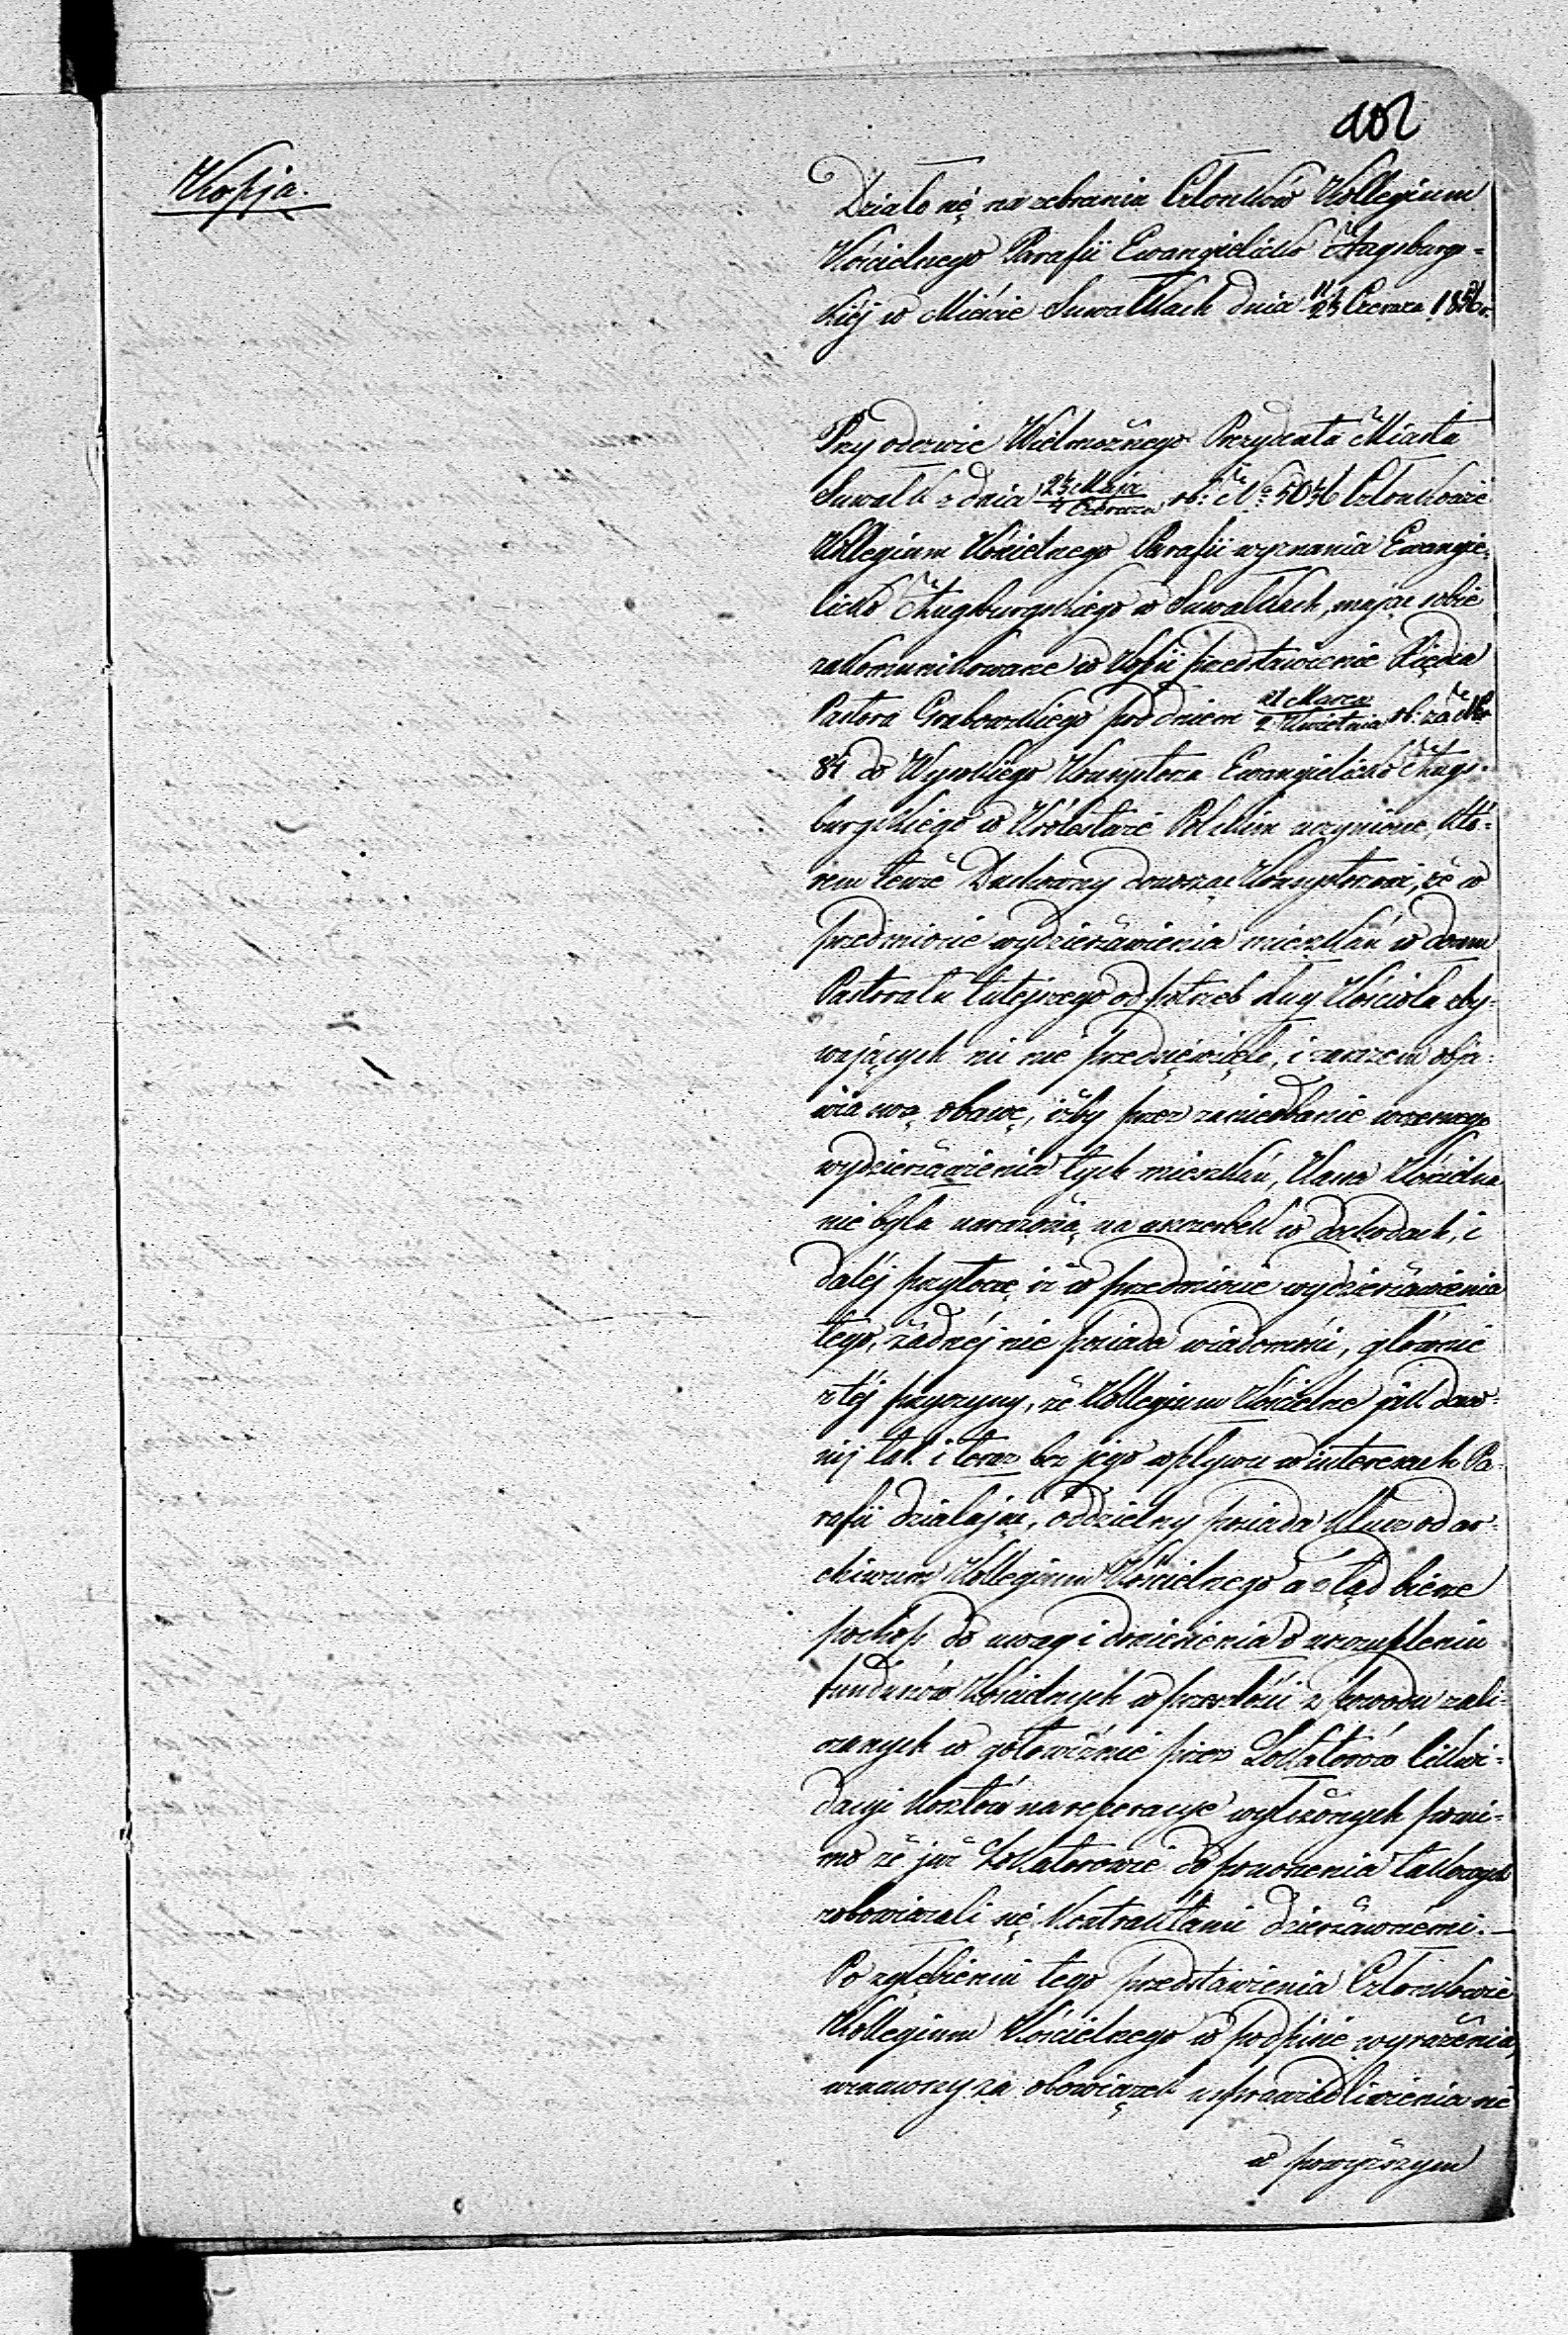 102
Kopja.
Działo się na zebraniu Członków Kollegium
Kościelnego Parafii Ewangielicko Augsburgs=
kiéj w Mieście Suwałkach dnia 11/23 Czerwca 185 r.
Przy odezwie Wielmożnego Prezydenta Miasta
Suwałk z dnia 23 Maja/4 Czerwca rb: No Członkowie
Kollegium Kościelnego Parafii wyznania Ewangie=
licko Augsburgskiego w Suwałkach, mając sobie
zakomunikowane w Kopii przedstawienie Księdza
Pastora Grabowskiego pod dniem 21 Marca/2 Kwietnia rb: za No
84 do Wysokiego Konsystorza Ewangielicko Augs=
burgskiego w Królestwie Polskim uczynione, któ=
rem tenże Duchowny donosząc Konsystorzowi, że w
przedmiocie wydzierżawienia mieszkań w domu
Pastoratu tutejszego od potrzeb sług Kościoła zby=
wających nic nie przedsięwzięto, i zarazem obja=
wia swą obawę, iżby przez zaniedbanie wczesnego
wydzierżawienia tych mieszkań, Kassa Kościelna
nie była narażoną na uszczerbek w dochodach, i
daléj przytocza iż w przedmiocie wydzierżawienia
tego, żadnéj nie posiada wiadomości, głównie
z téj przyczyny, że Kollegium Kościelne jak daw=
niéj tak i teraz bez jego wpływu w interesach Pa=
rafii działając, oddzielny posiada Klucz od ar=
chiwum Kollegium Kościelnego a ztąd bierze
pochop do uwagi i doniesienia o uszczupleniu
funduszów Kościelnych w przeszłości z powodu zali=
czanych w gotowiźnie przez Lokatorów likwi=
dacyi kosztów na reperacye wyłożonych pomi=
mo że już Lokatorowie do ponoszenia takowych
zobowiązali się Kontraktami dzierżawnemi.—
Po zgłębieniu tego przedstawienia Członkowie
Kollegium Kościelnego w podpisie wyrażeni,
uznawszy za obowiązek usprawiedliwienia się
w powyższym